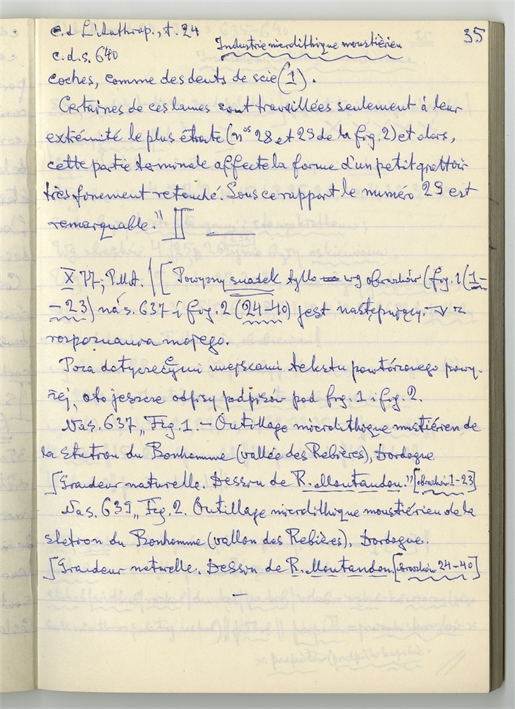 c.d L'Anthrop., t. 24
35
Industrie microlithique moustérien
c.d.s. 640
coches, comme des dents de scie (1).
Certaines de ces lames sont travaillées seulement à leur
extrémité le plus étroite (nos 28 et 29 de la fig. 2) et alors,
cette partie terminale affecte la forme d'un petit grattoir
très finement retouché. Sous ce rapport le numéro 29 est
remarquable."
X 77; P.Mt. Powyższy tylko wg obrazków (fig. 1 (1-
-23) na s. 637 i fig. 2 (24-40) jest następujący
rozpoznania mojego.
Poza dotyczącymi miejscami tekstu powtórzonego powy-
żej, oto jeszcze odpisy podpisów pod fig. 1 i fig. 2.
Na s. 637 „Fig. 1. – Outillage microlithique mustiérien de
la station du Bonhomme (vallée des Rebières), Dordogne
[Grandeur naturelle. Dessin de R. Moutandon." [obrazków 1-23]
Na s. 639 „Fig. 2. Outillage microlithique moustérien de la
station du Bonhomme (vallon des Rebières), Dordogne.
[Grandeur naturelle. Dessin de R. Moutandon [obrazków 24-40]
—